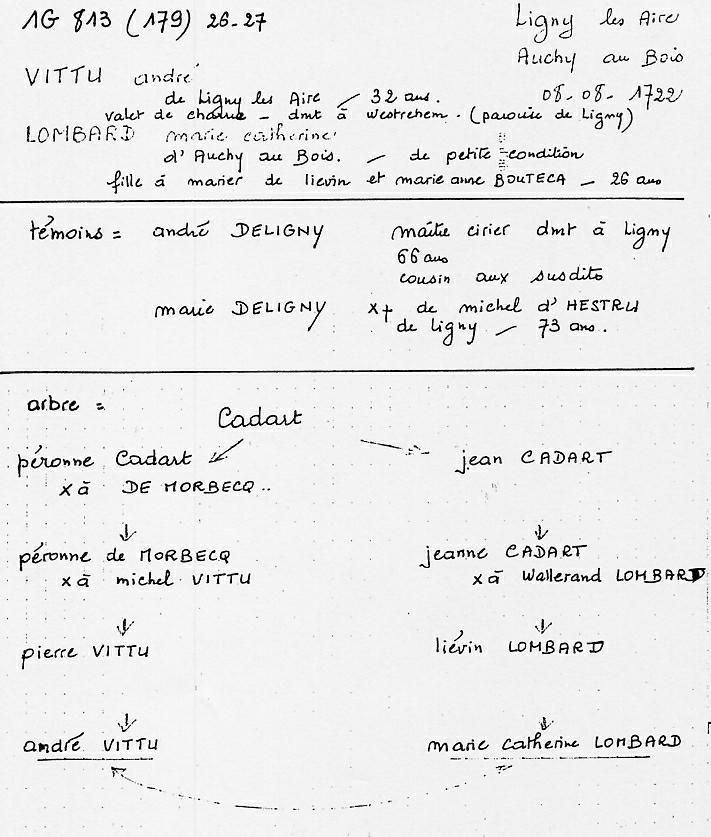 1G 813 (179) 26-27
Ligny les Aire
Auchy au Bois
VITTU andré
de Ligny les Aire / 32 ans. 08-08-1722
valet de charue - dmt à Westrehem. (paroisse de Ligny)
LOMBARD marie catherine
d'Auchy au Bois. - de petite condition
fille à marier de lievin et marie anne BOUTECA - 26 ans
témoins = andré DELIGNY maître cirier dmt à Ligny
66 ans
cousin aux susdits
marie DELIGNY x+ de michel d'HESTRU
de Ligny - 73 ans.
arbre =
Cadart
péronne Cadart jean CADART
x à DE MORBECQ ..
péronne de MORBECQ jeanne CADART
x à michel VITTU x à Wallerand LOMBARD
pierre VITTU liévin LOMBARD
andré VITTU marie catherine LOMBARD